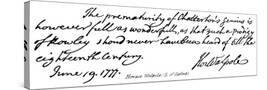 The prematurity of Chatterton's genius is
however full as wonderfull, as that such a prodigy
of Rowley shoud never have been heard of till the
eighteenth Century.
Hor Walpole
June 19. 1777.
Horace Walpole